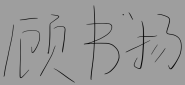 顾书扬